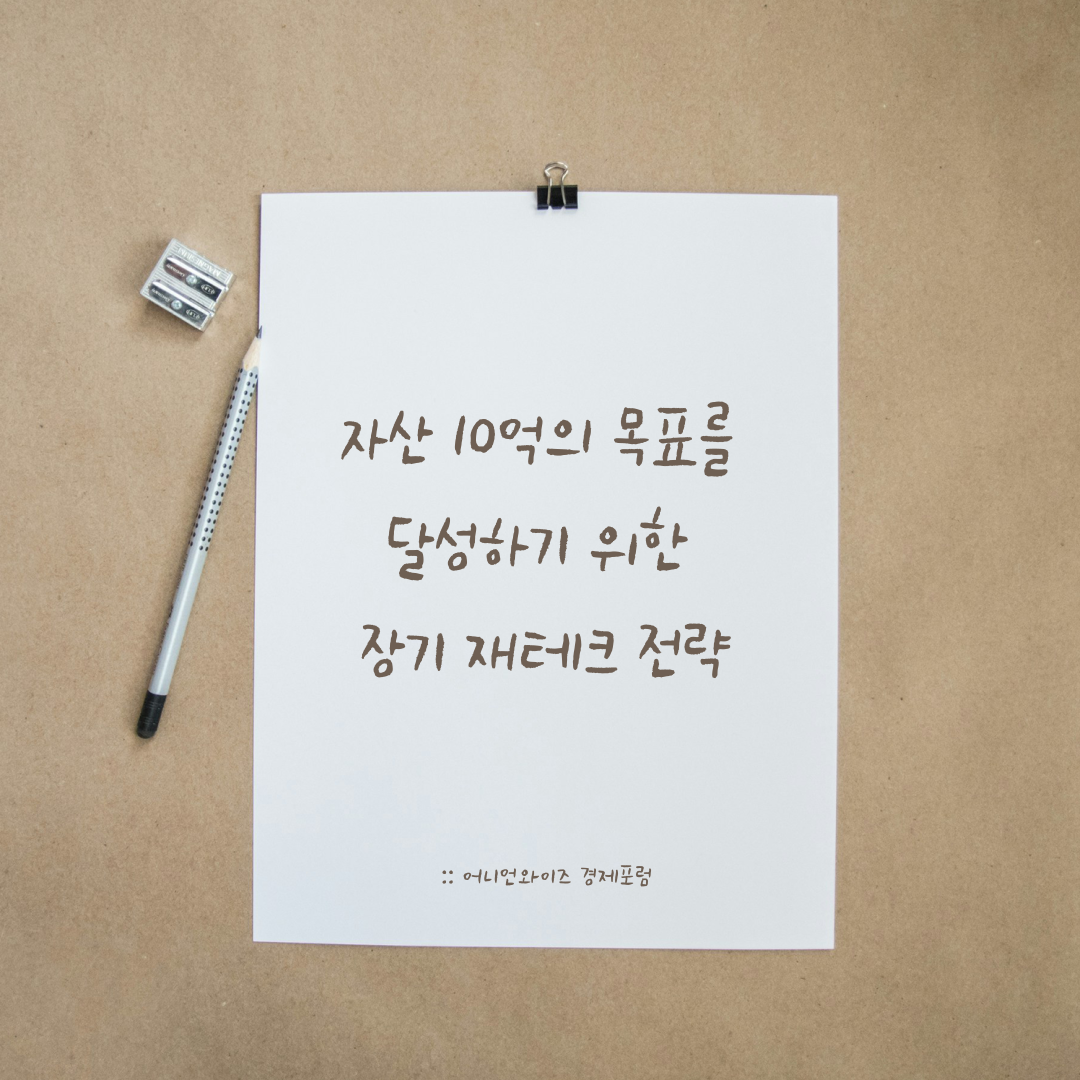 자산 10억의 목표를
달성하기 위한
장기 재테크 전략
:: 어니언와이즈 경제포럼